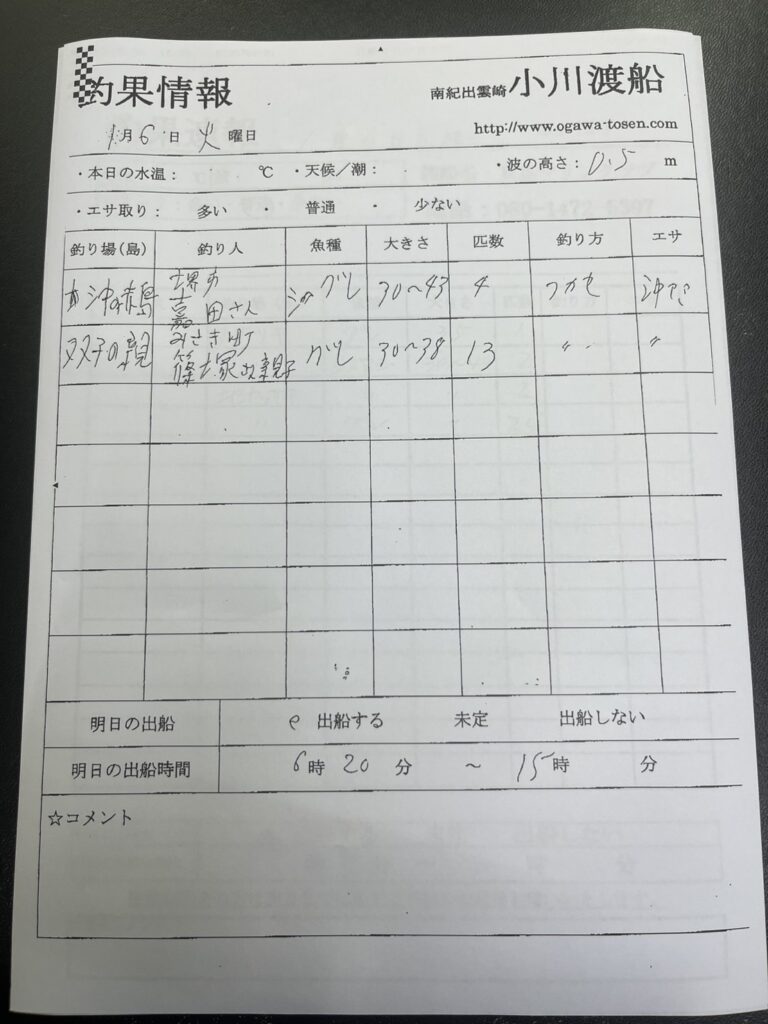 釣果情報
南紀出雲崎 小川渡船
1月6日 火曜日
http://www.ogawa-tosen.com
・本日の水温： ℃ ・天候／潮： ・波の高さ：0.5 m
・エサ取り： 多い ・ 普通 ・ 少ない
釣り場(島) 釣り人 魚種 大きさ 匹数 釣り方 エサ
沖の赤島 堺市 田さん グレ 30〜43 4 フカセ
双子の親 みさき町 篠塚 親子 グレ 30〜38 13 〃 〃
明日の出船 出船する 未定 出船しない
明日の出船時間 6時20分 〜 15時 分
☆コメント